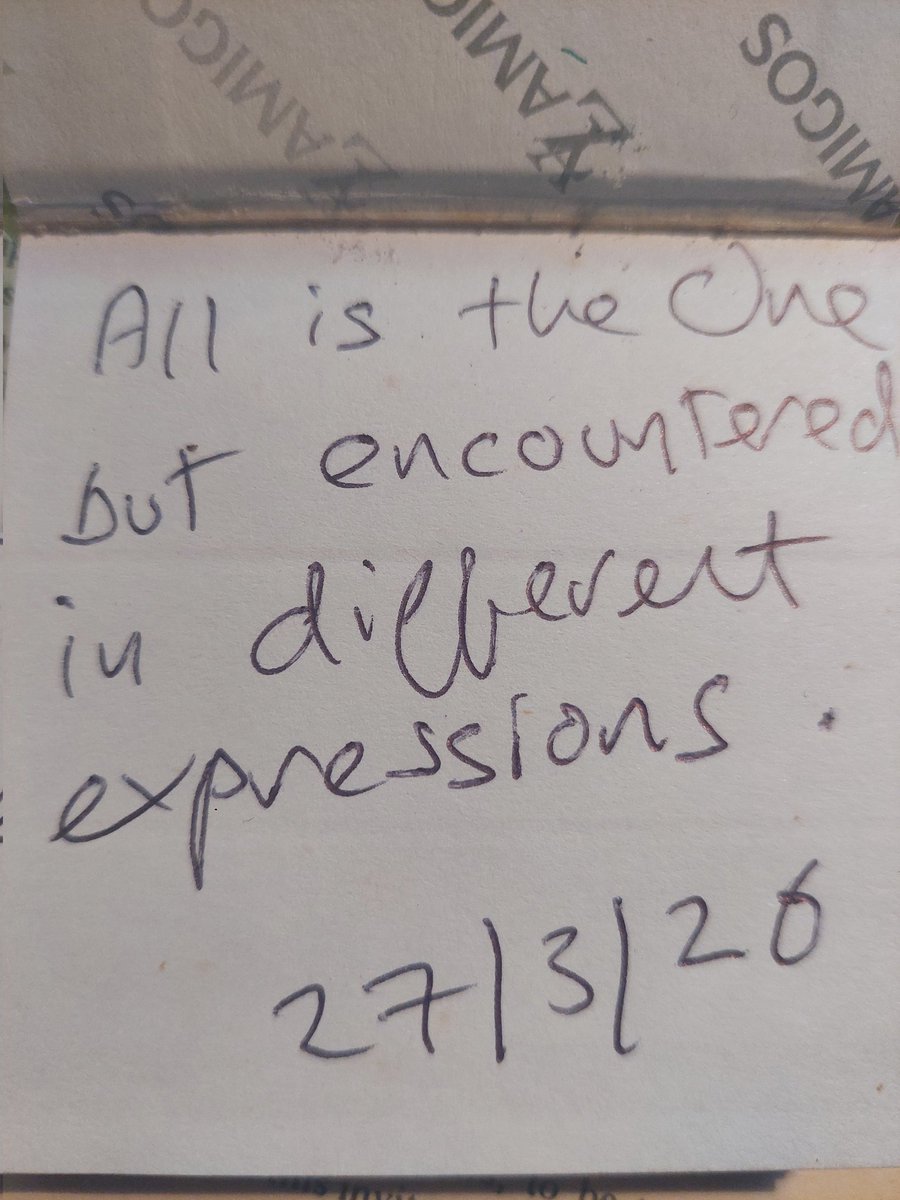 AMIGOS
AMIGOS
AMIGOS
All is the One
but encountered
in different
expressions.
27/3/26
to be